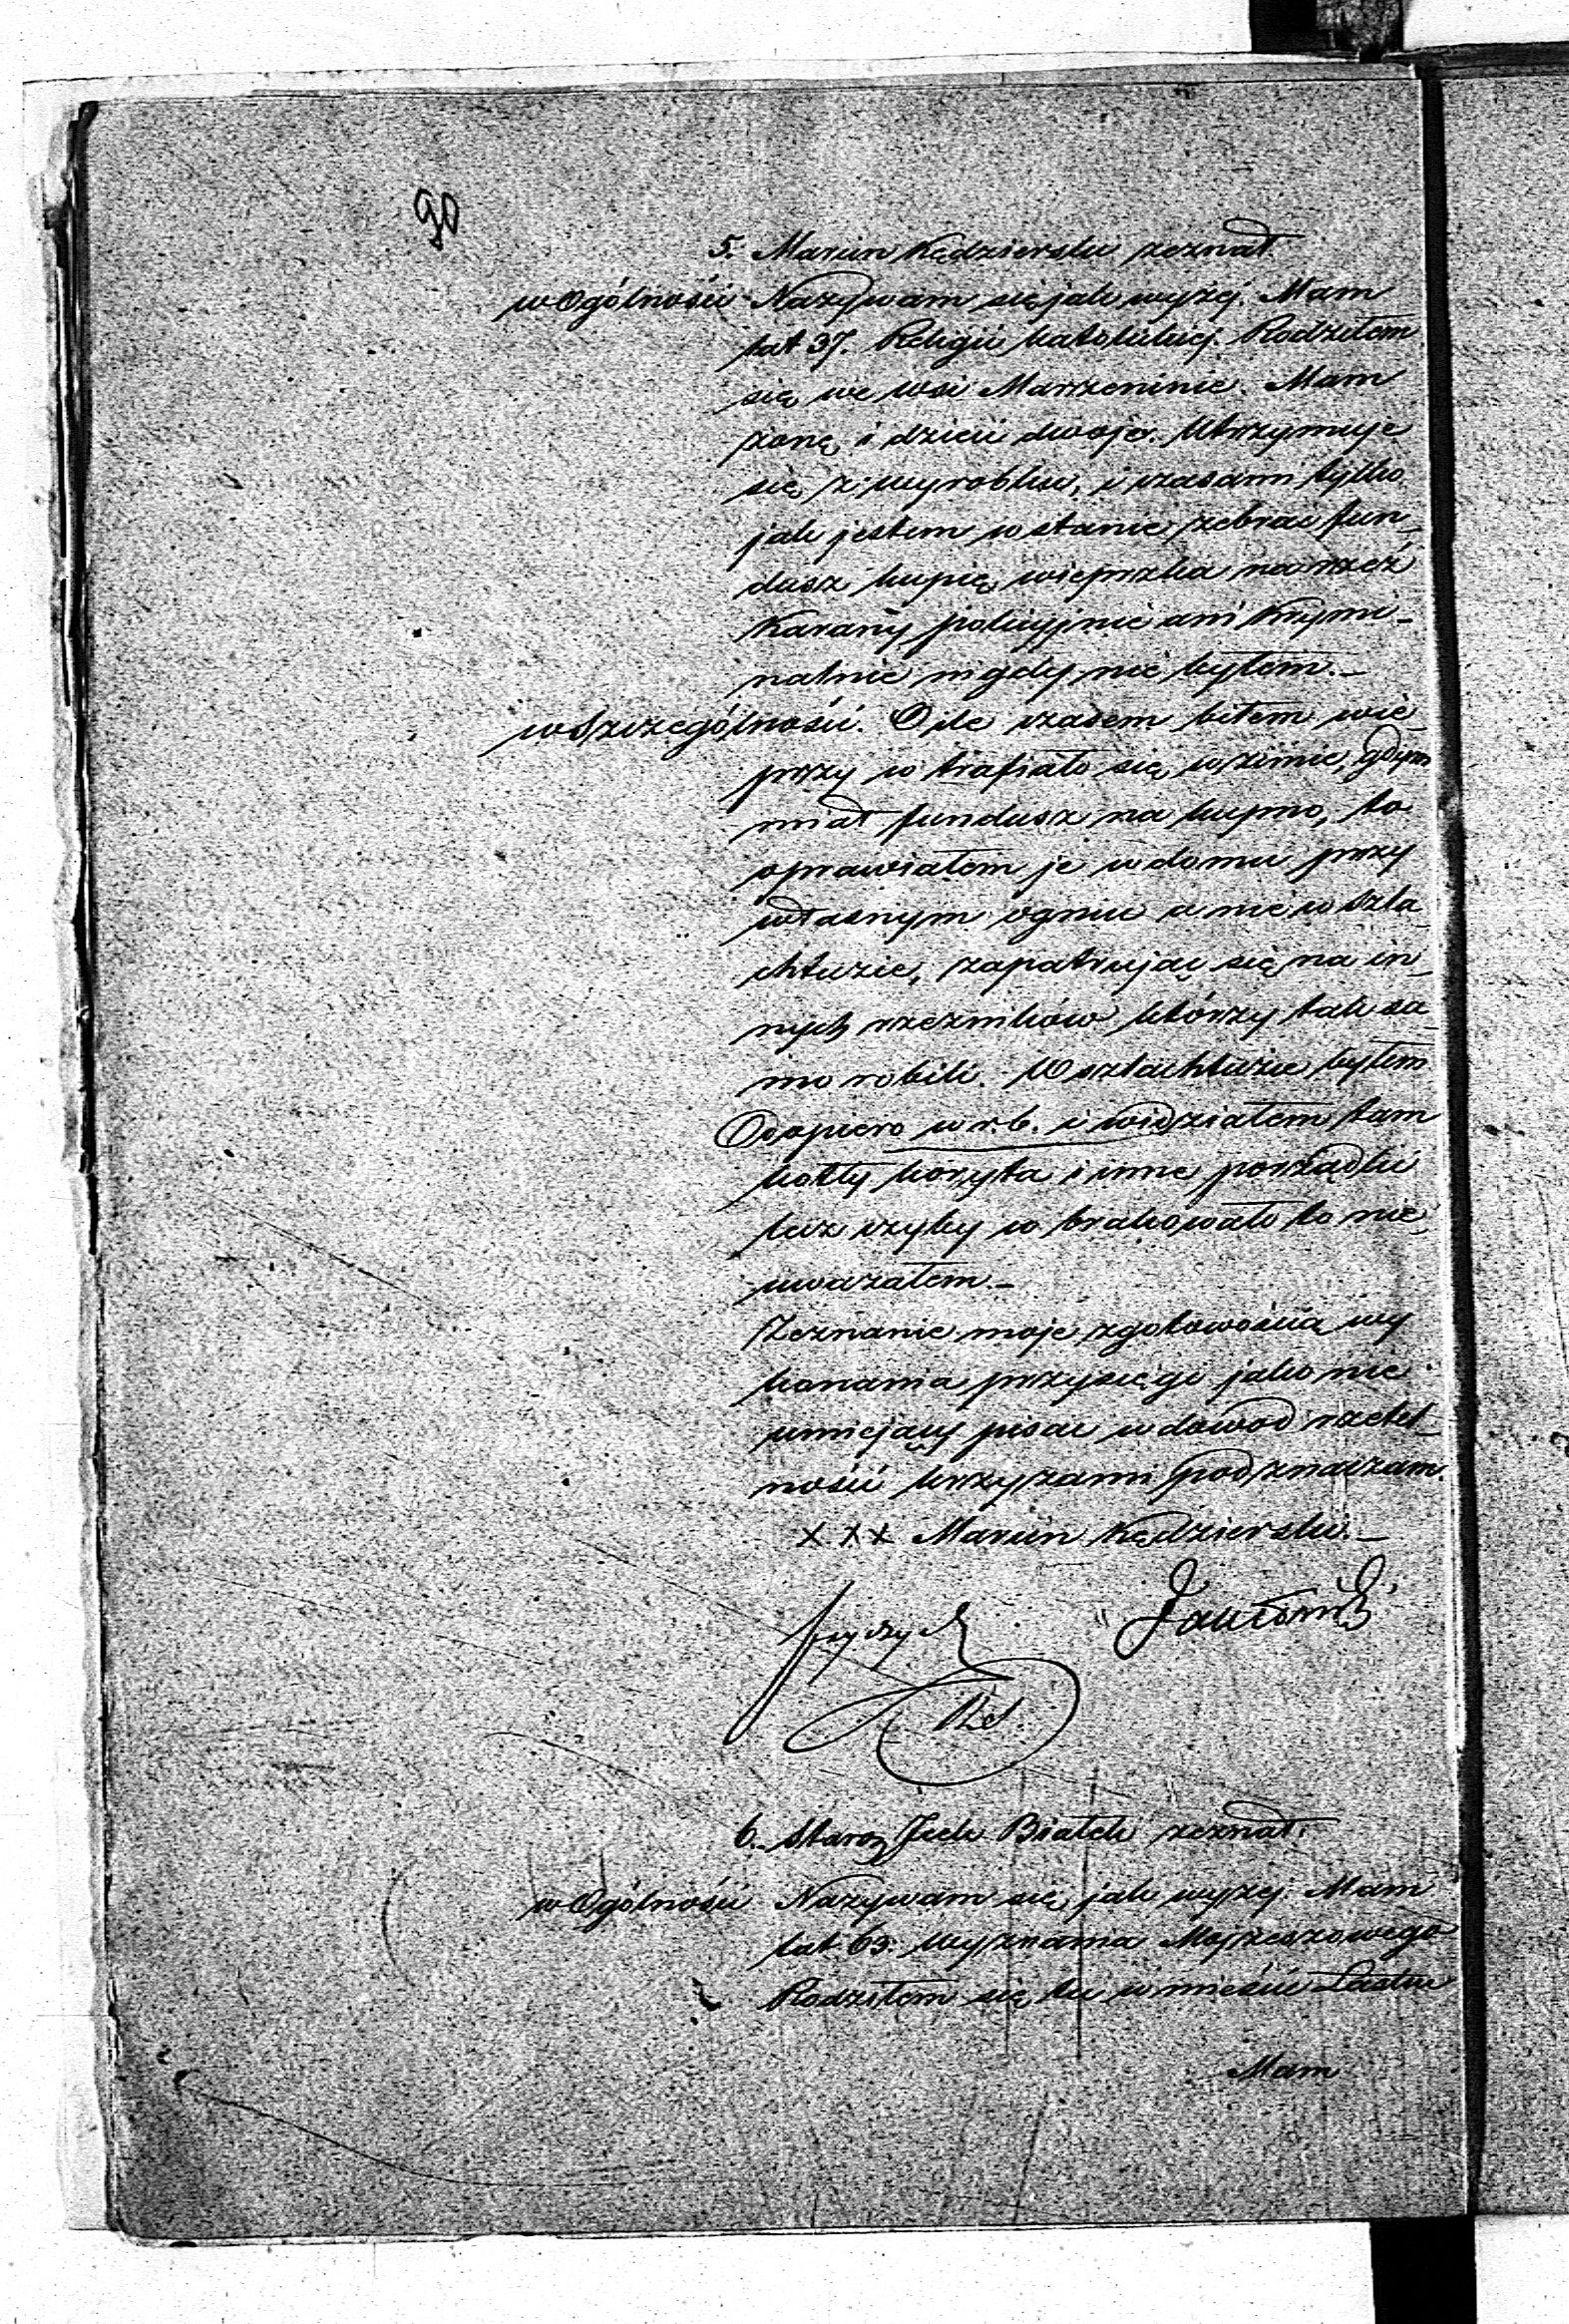 90
5. Marcin Kędzierski zeznał.
w Ogólności Nazywam się jak wyżej. Mam
lat 37. Religii katolickiej. Rodziłem
się we wsi Marzeninie. Mam
żonę i dzieci dwoje. Utrzymuję
się z wyrobku, i czasami tylko
jak jestem w stanie zebrać fun_
dusz kupię wieprzka na rzeź
Karany policyjnie ani Krymi_
nalnie nigdy nie byłem._
w Szczególności. O ile czasem biłem wie
przy co trafiało się w zimie, gdym
miał fundusz na kupno, to
oprawiałem je w domu przy
własnym ogniu a nie w szla_
chtuzie, zapatrując się na in_
nych rzeźników którzy tak sa_
mo robili. W szlachtuzie byłem
Dopiero w r. b. i widziałem tam
kotły koryta i inne porządki
lecz czyby co brakowało to nie
uważałem._
Zeznanie moje z gotowością wy
konania przysięgi jako nie
umiejący pisać w dowód rzetel_
ności krzyżami podznaczam.
X X X Marcin Kędzierski._
6. Staroz Icek Białek zeznał.
w Ogólności Nazywam się jak wyżej. Mam
lat 63. wyznania Mojżeszowego
Rodziłem się tu w mieście Łasku
Mam